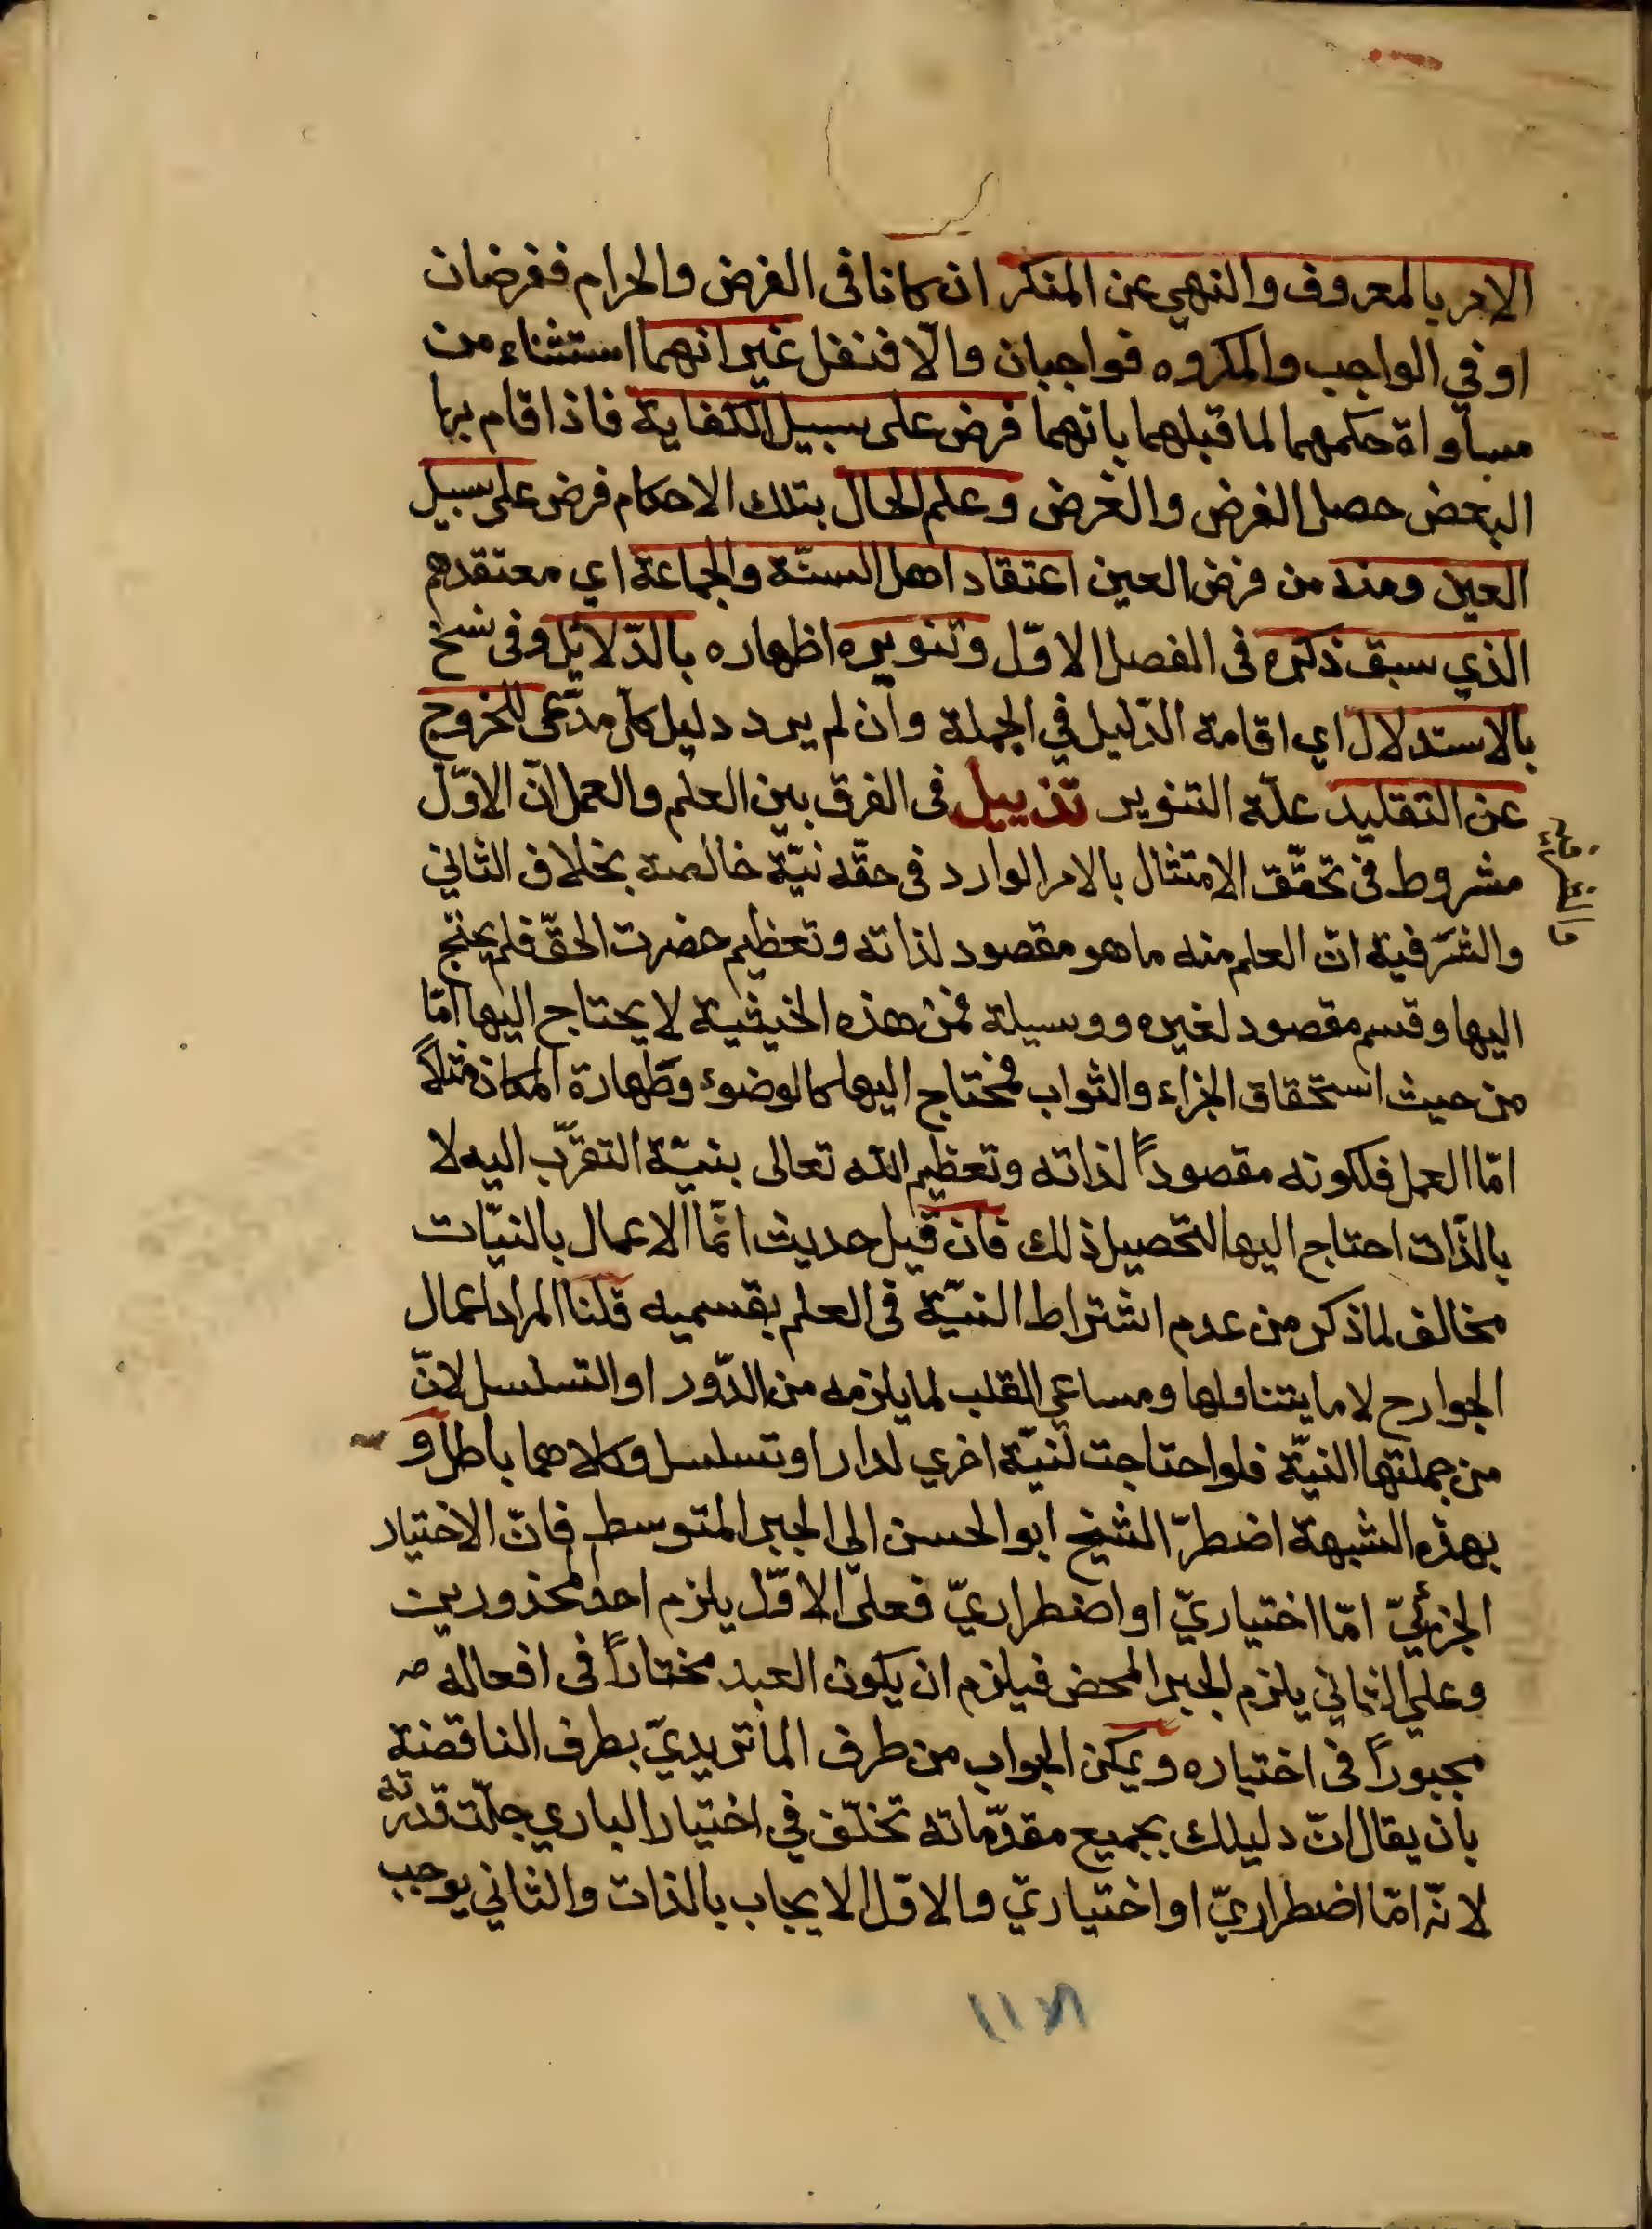 الامر بالمعروف والنهي عن المنكر ان كانا فى الفرض والحرام ففرضان
او في الواجب والمكروه فواجبان والّا فنفل غير انهما استثناء من
مساواة حكمهما لما قبلهما بانهما فرض على سبيل الكفاية فاذا قام بها
البعض حصل الفرض والغرض وعلم الحال بتلك الاحكام فرض على سبيل
العين ومنه من فرض العين اعتقاد اهل السنّة والجماعة اي معتقدهم
الذي سبق ذكره فى الفصل الاوّل وتنويره اظهاره بالدّلائل وفى نسخ
بالاستدلال اي اقامة الدّليل في الجملة وان لم يرد دليل كل مدّعى للخروج
عن التقليد علّة التنوير تذييل فى الفرق بين العلم والعمل انّ الاوّل
مشروط فى تحقّق الامتثال بالامر الوارد فى حقّه نيّة خالصة بخلاف الثاني
والشرفية انّ العلم منه ما هو مقصود لذاته وتعظيم حضرت الحقّ فلم يحتج
اليها وقسم مقصود لغيره ووسيلة فمن هذه الحيثية لا يحتاج اليها امّا
من حيث استحقاق الجزاء والثواب فمحتاج اليها كالوضوء وطهارة المكان مثلاً
امّا العمل فلكونه مقصوداً لذاته وتعظيم الله تعالى بنيّة التقرّب اليه لا
بالذّات احتاج اليها لتحصيل ذلك فان قيل حديث انّما الاعمال بالنيّات
مخالف لما ذكر من عدم اشتراط النيّة فى العلم بقسميه قلنا المراد اعمال
الجوارح لا ما يتناولها ومساعي القلب لما يلزمه من الدّور او التسلسل لانّ
من جملتها النيّة فلو احتاجت لنيّة اخري لدار او تسلسل وكلاهما باطل و
بهذه الشبهة اضطرّ الشيخ ابو الحسن الي الجبر المتوسط فانّ الاختيار
الجزئيّ امّا اختياريّ او اضطراريّ فعلى الاوّل يلزم احد المحذورين
وعلي الثاني يلزم الجبر المحض فيلزم ان يكون العبد مختاراً فى افعاله
مجبوراً فى اختياره ويمكن الجواب من طرف الماتريديّ بطرف الناقضة
بان يقال انّ دليلك بجميع مقدّماته تخلّف في اختيار الباري جلّت قدرته
لانّه امّا اضطراريّ او اختياريّ والاوّل الايجاب بالذات والثاني يوجب